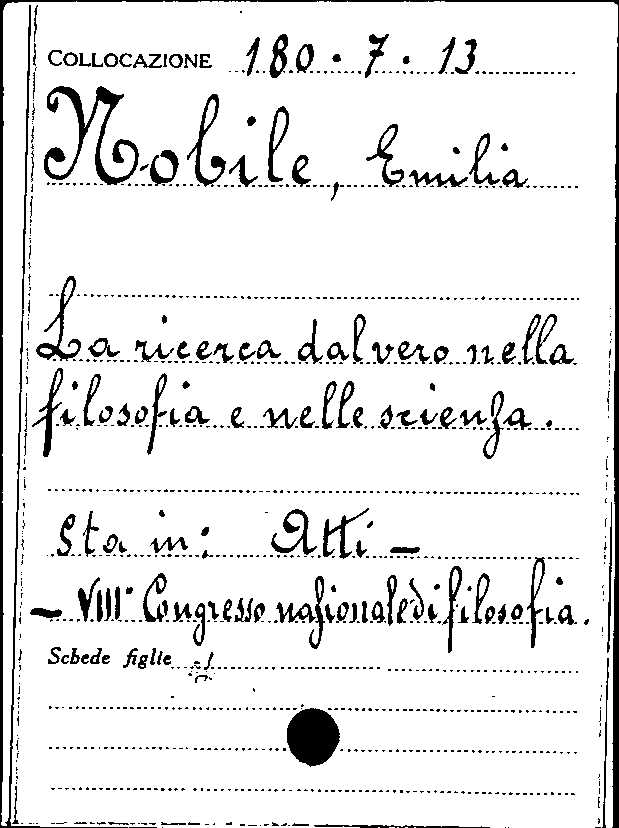 COLLOCAZIONE 180 · 7 · 13
Nobile, Emilia
La ricerca dal vero nella
filosofia e nelle scienza.
Sta in: Atti –
– VIII° Congresso nazionale di filosofia.
Schede figlie